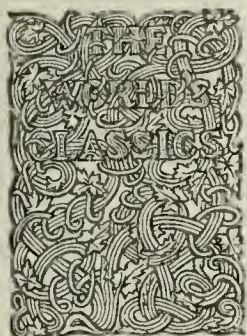 THE
WORLD'S
CLASSICS